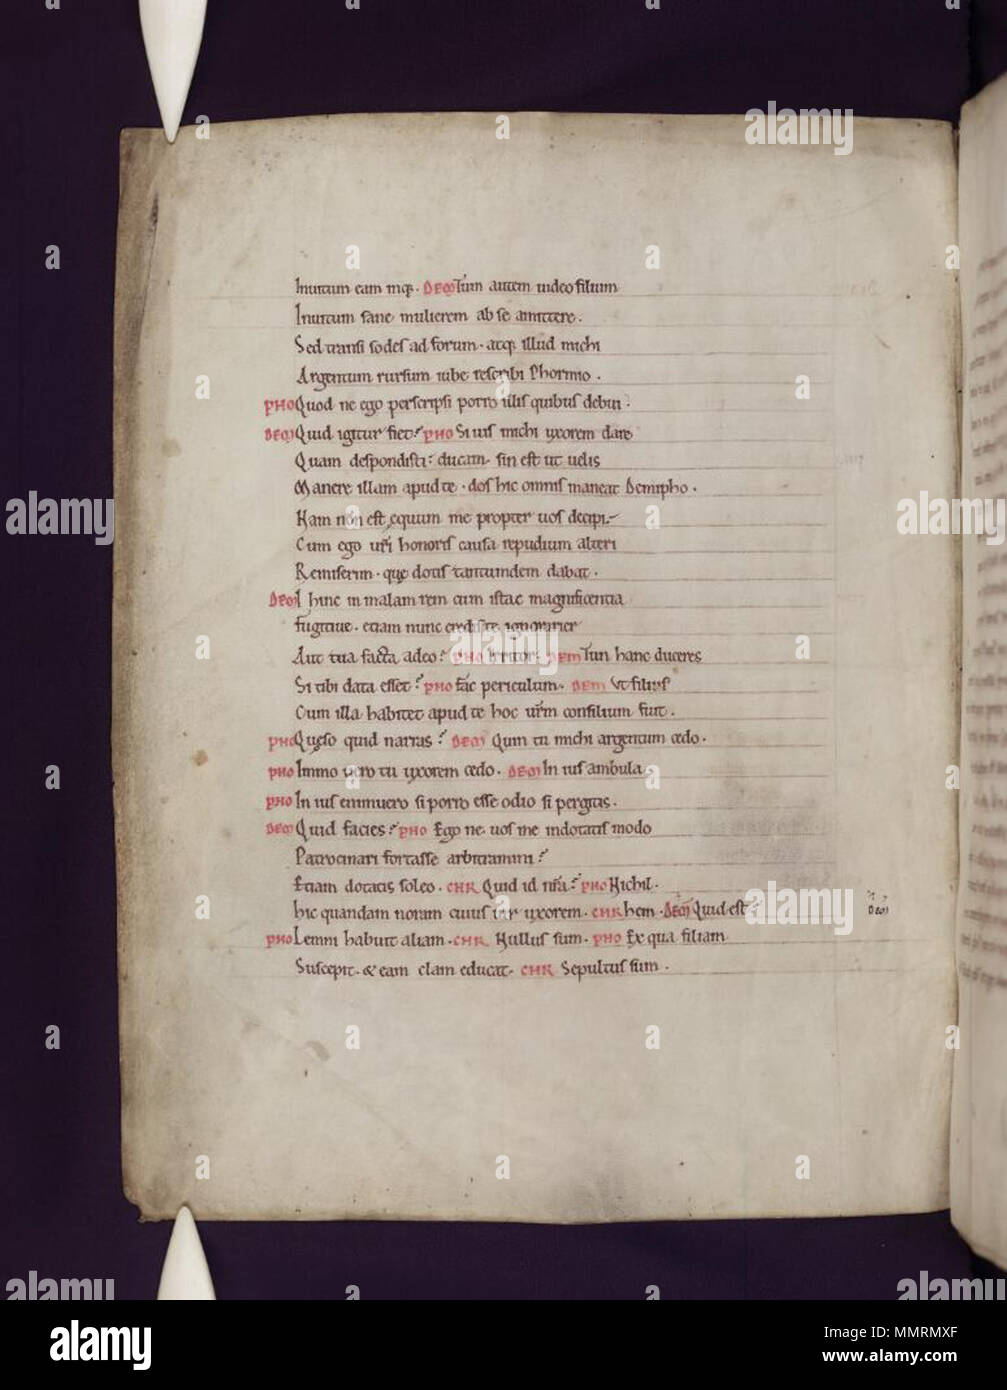 Inuitum eam mqꝫ. DEM Tum autem uideo filium
Inuitum sane mulierem ab se amittere.
Sed transi sodes ad forum. atqꝫ illud michi
Argentum rursum iube rescribi Phormio.
PHO Quod ne ego perscripsi porro illis quibus debui.
DEM Quid igitur fiet? PHO Si uis michi uxorem dare
Quam despondisti? ducam. sin est ut uelis
Manere illam apud te. dos hic omnis maneat Demipho.
Nam non est equum me propter uos decipi.
Cum ego uri honoris causa repudium alteri
Remiserim. que dotis tantumdem dabat.
DEM I hinc in malam rem cum istac magnificentia
fugitiue. etiam nunc credis te ignorarier
Aut tua facta adeo? PHO Irritor. DEM Tun hanc duceres
Si tibi data esset? PHO fac periculum. DEM Vt filius
Cum illa habitet apud te hoc urm consilium fuit.
PHO Queso quid narras? DEM Quin tu michi argentum cedo.
PHO Immo uero tu uxorem cedo. DEM In ius ambula
PHO In ius enimuero si porro esse odiosi pergitis.
DEM Quid facies? PHO Ego ne. uos me indotatis modo
Patrocinari fortasse arbitramini?
Etiam dotatis soleo. CHR Quid id nra? PHO Nichil.
hic quandam noram cuius uir uxorem. CHR hem. DEM Quid est?
DEM
PHO Lemni habuit aliam. CHR Nullus sum. PHO Ex qua filiam
Suscepit. & eam clam educat. CHR Sepultus sum.
alamy
Image ID: MMRMXF
www.alamy.com